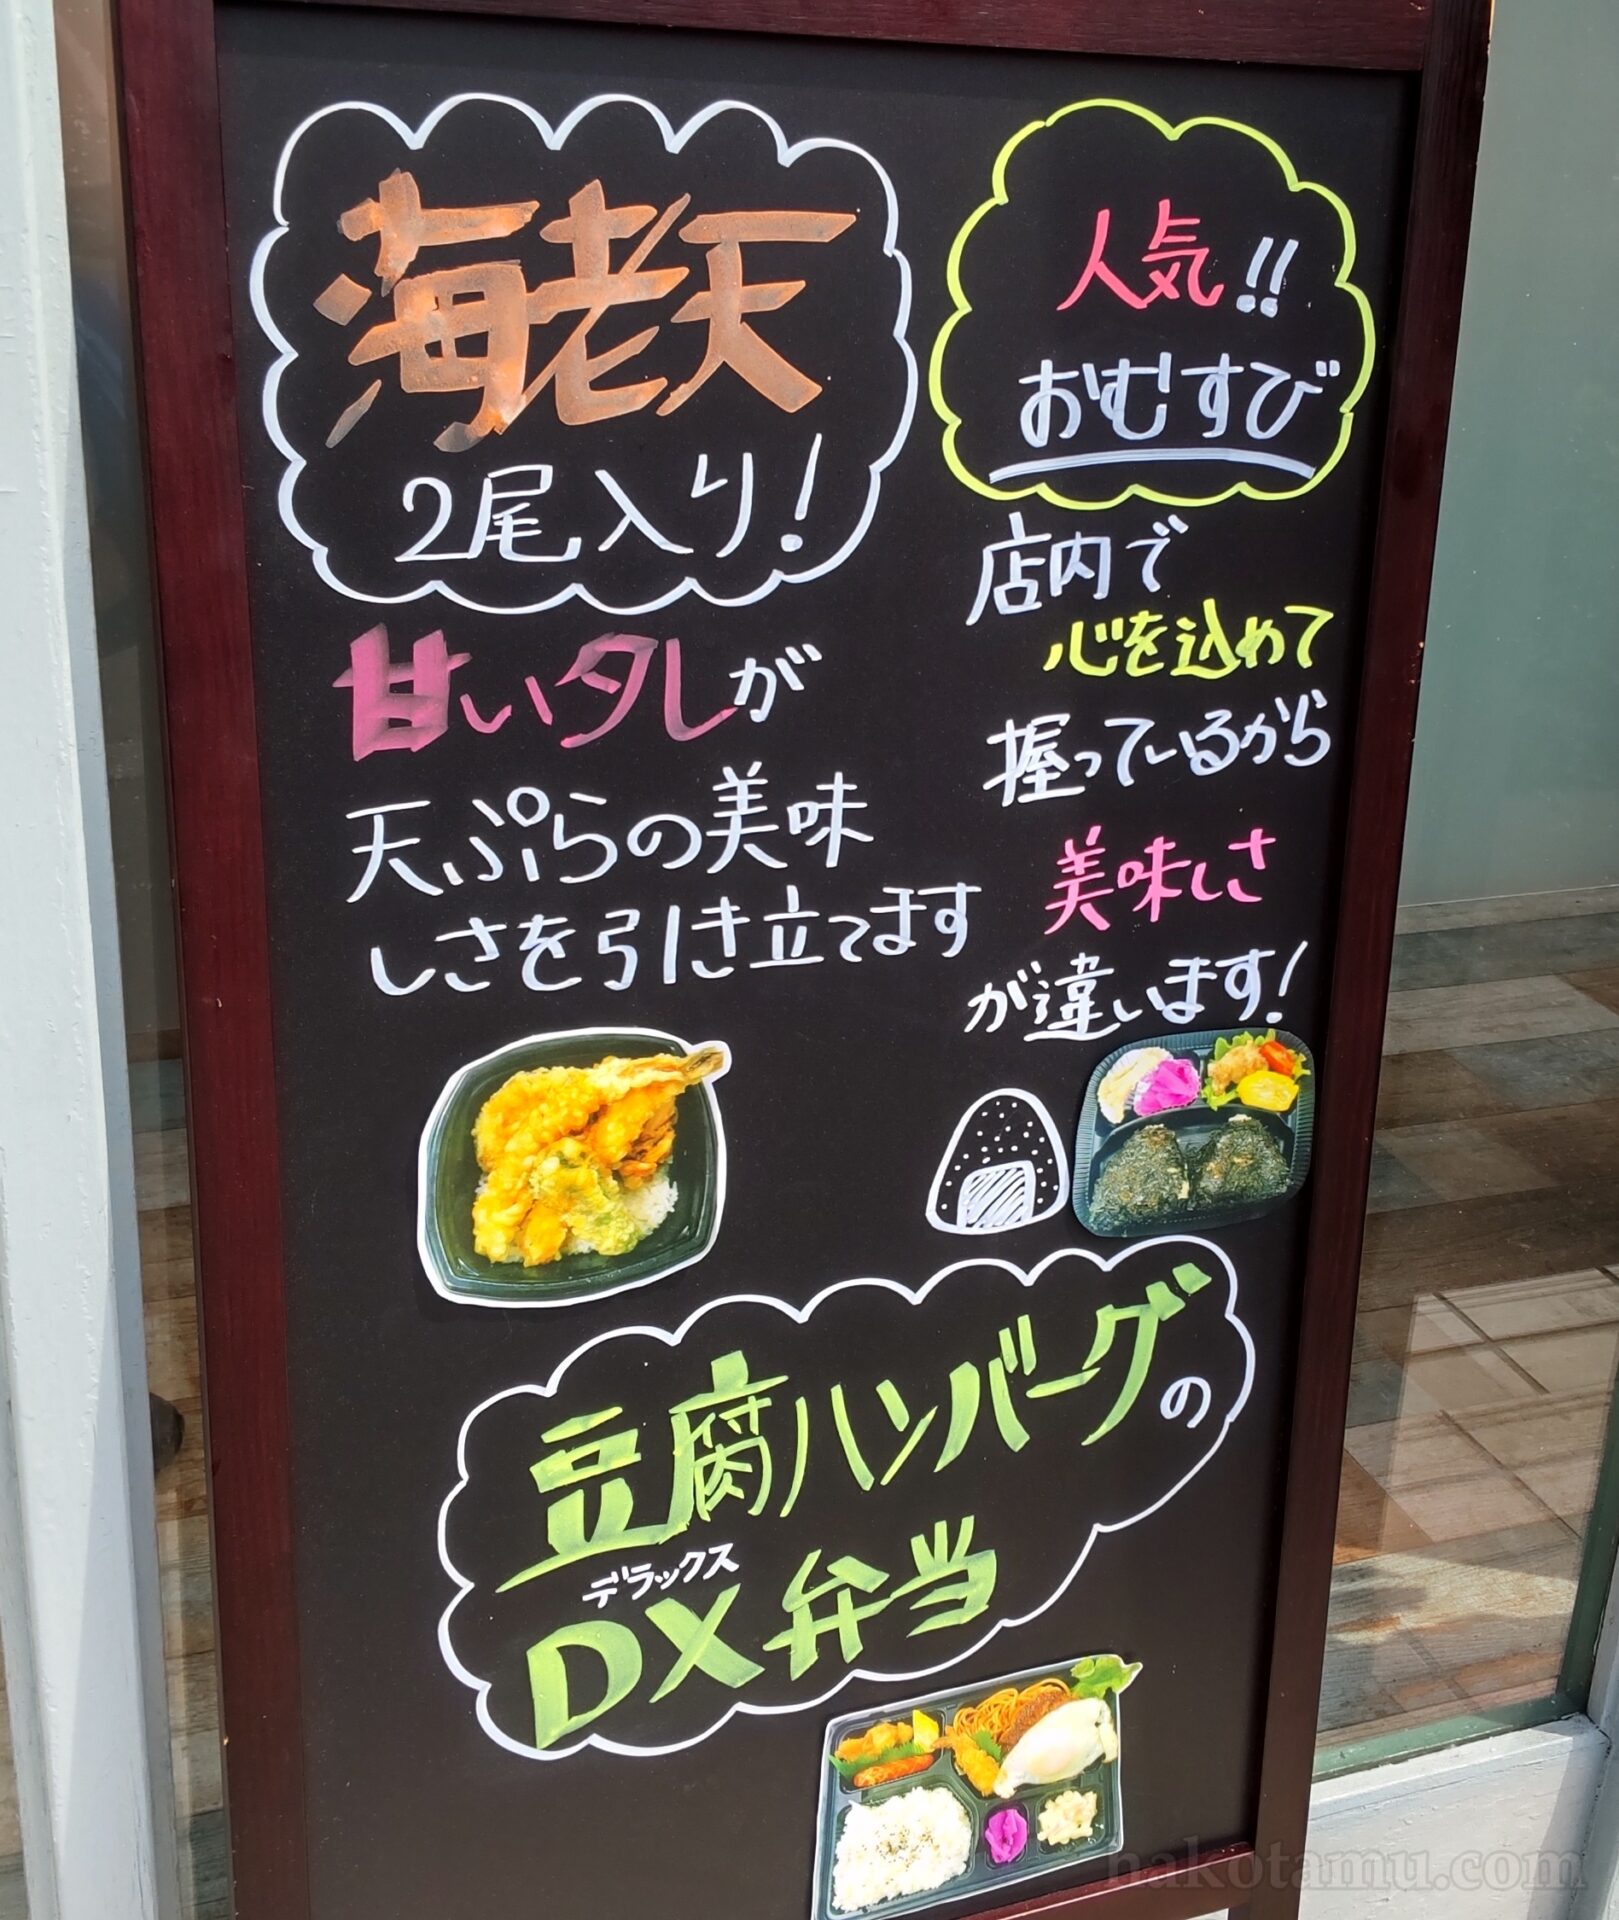 海老天
2尾入り!
甘いタレが
天ぷらの美味
しさを引き立てます
人気!!
おむすび
店内で
心を込めて
握っているから
美味しさ
が違います!
豆腐ハンバーグの
デラックス
DX弁当
hakotamu.com